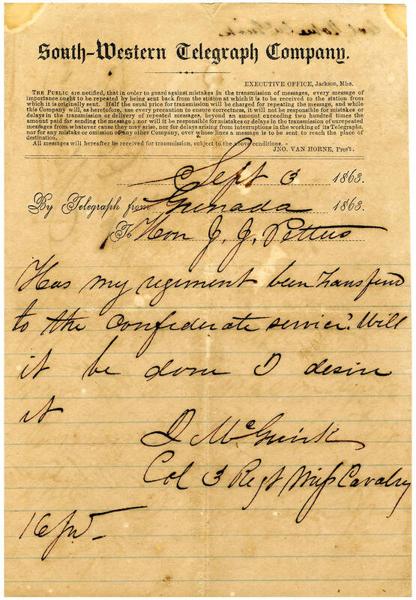 South-Western Telegraph Company.
EXECUTIVE OFFICE, Jackson, Miss.
THE PUBLIC are notified, that in order to guard against mistakes in the transmission of messages, every message of
importance ought to be repeated by being sent back from the station at which it is to be received to the station from
which it is originally sent. Half the usual price for transmission will be charged for repeating the message, and while
this Company will, as heretofore, use every precaution to ensure correctness, it will not be responsible for mistakes or
delays in the transmission or delivery of repeated messages, beyond an amount exceeding two hundred times the
amount paid for sending the message; nor will it be responsible for mistakes or delays in the transmission of unrepeated
messages from whatever cause they may arise, nor for delays arising from interruptions in the working of its Telegraphs,
nor for any mistake or omission of any other Company, over whose lines a message is to be sent to reach the place of
destination.
All messages will hereafter be received for transmission, subject to the above conditions.
JNO. VAN HORNE, Pres't.
Sept 3 1863.
By Telegraph from Grenada 1863.
To Hon J. J. Pettus
Has my regiment been transferd
to the confederate service? Will
it be done I desire
it
Mc
Col 3 Regt Miss Cavalry
16